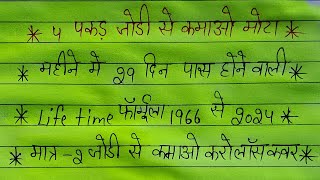 * ५ पकड़ जोडी से कमाओ मोटा *
* महीने मे २९ दिन पास होने वाली *
* Life time फॉर्मूला 1966 से 2024 *
* मात्र -२ जोडी से कमाओ करो लॉस कवर *